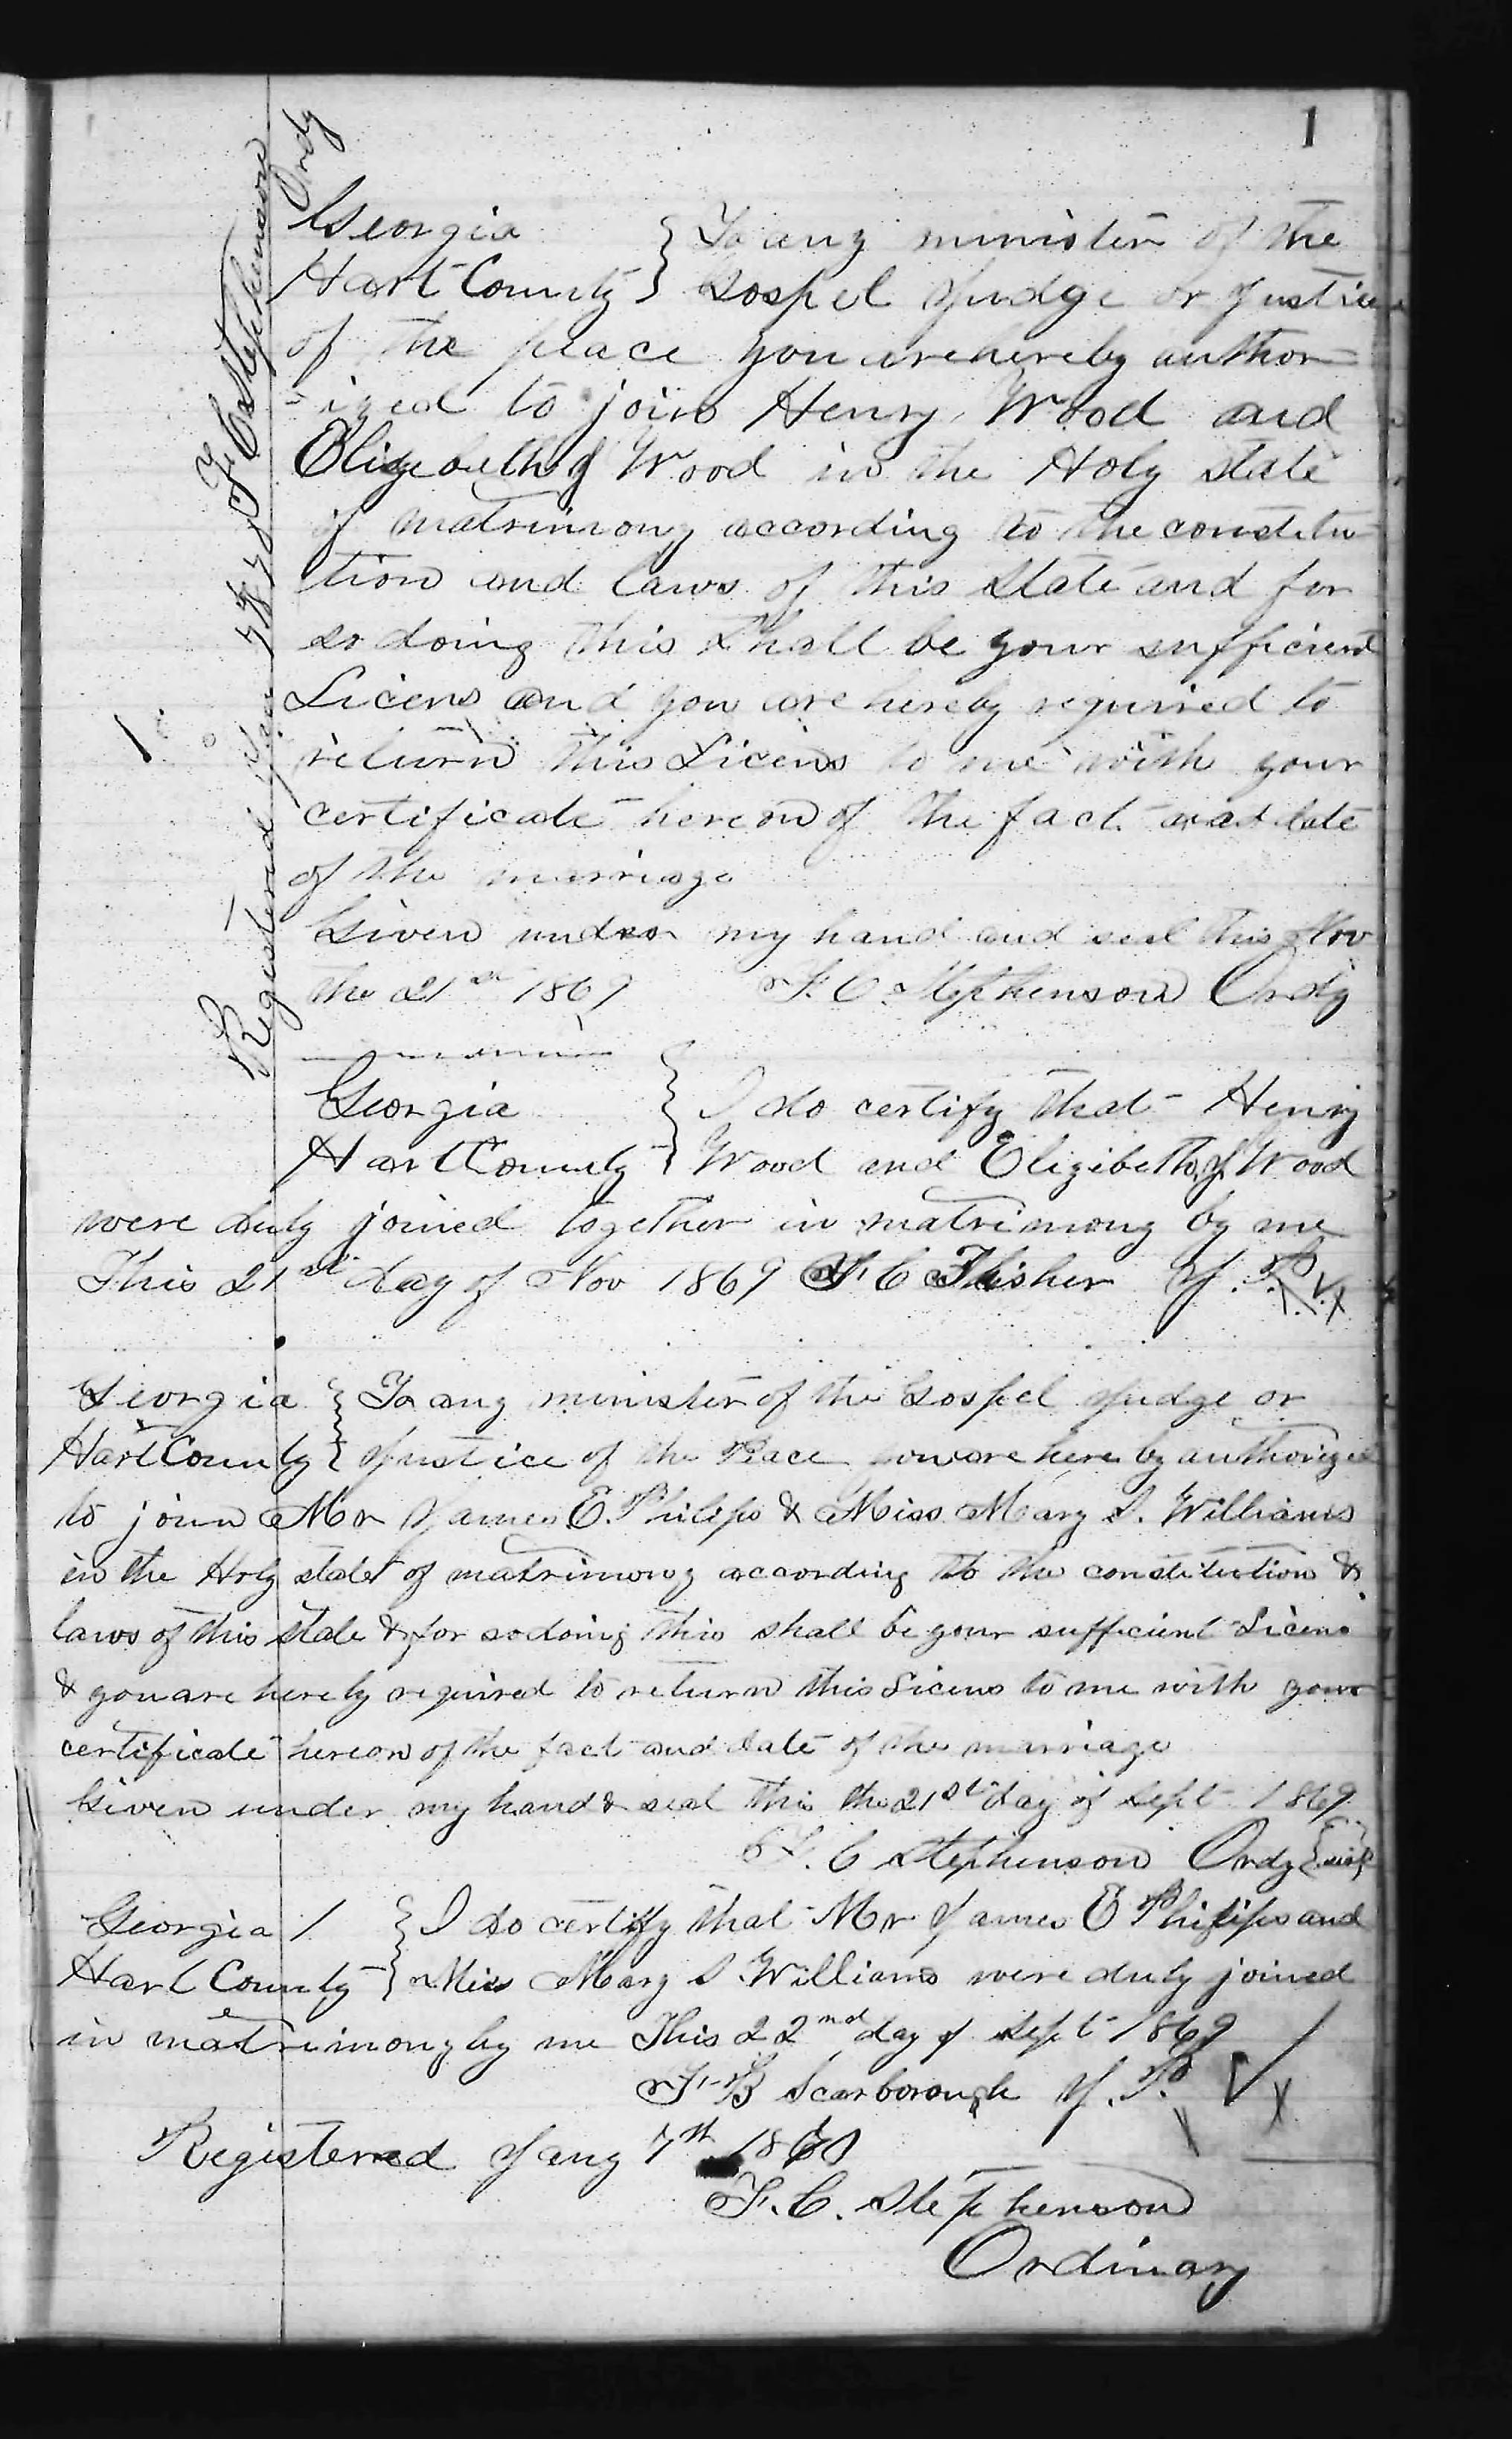 1
Georgia } To any minister of the
Hart County } Gospel Judge or Justice
of the peace you are hereby author
ized to join Henry Wood and
Elizabeth J Wood in the Holy state
of matrimony according to the constitu
tion and laws of this State and for
so doing this shall be your sufficient
Licens and you are hereby required to
return this Licens to me with your
certificate hereon of the fact and date
of the marriage
Given under my hand and seal this Nov
the 21st 1869 F. C. Stephenson Ordy
Georgia } I do certify that Henry
Hart County } Wood and Elizibeth J Wood
were duly joined together in matrimony by me
This 21st day of Nov 1869 F C Fisher J. P.
Registered Jany 7th 1870 F. C. Stephenson Ordy
Georgia } To any minister of the Gospel Judge or
Hart County } Justice of the Peace you are here by authorized
to join Mr James E. Philips & Miss Mary S. Williams
in the Holy state of matrimony according to the constitution &
laws of this state & for so doing this shall be your sufficient Licens
& you are hereby required to return this Licens to me with your
certificate hereon of the fact and date of the marriage
Given under my hand & seal this the 21st day of Sept 1869
F. C Stephenson Ordy
Georgia } I do certify that Mr James E Philips and
Hart County } Miss Mary S Williams were duly joined
in matrimony by me This 22nd day of Sept 1869
F. B Scarborough J. P.
Registered Jany 7th 1870
F. C. Stephenson
Ordinary